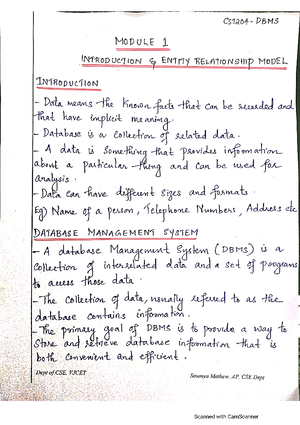 CST204 - DBMS
MODULE 1
INTRODUCTION & ENTITY RELATIONSHIP MODEL
INTRODUCTION
- Data means the known facts that can be recorded and
that have implicit meaning.
- Database is a collection of related data.
- A data is something that provides information
about a particular thing and can be used for
analysis.
- Data can have different sizes and formats.
Eg) Name of a person, Telephone Numbers, Address etc
DATABASE MANAGEMENT SYSTEM
- A database Management System (DBMS) is a
collection of interrelated data and a set of programs
to access those data.
- The collection of data, usually referred to as the
database contains information.
- The primary goal of DBMS is to provide a way to
store and retrieve database information that is
both convenient and efficient.
Dept of CSE, VJCET
Soumya Mathew, AP, CSE Dept
Scanned with CamScanner